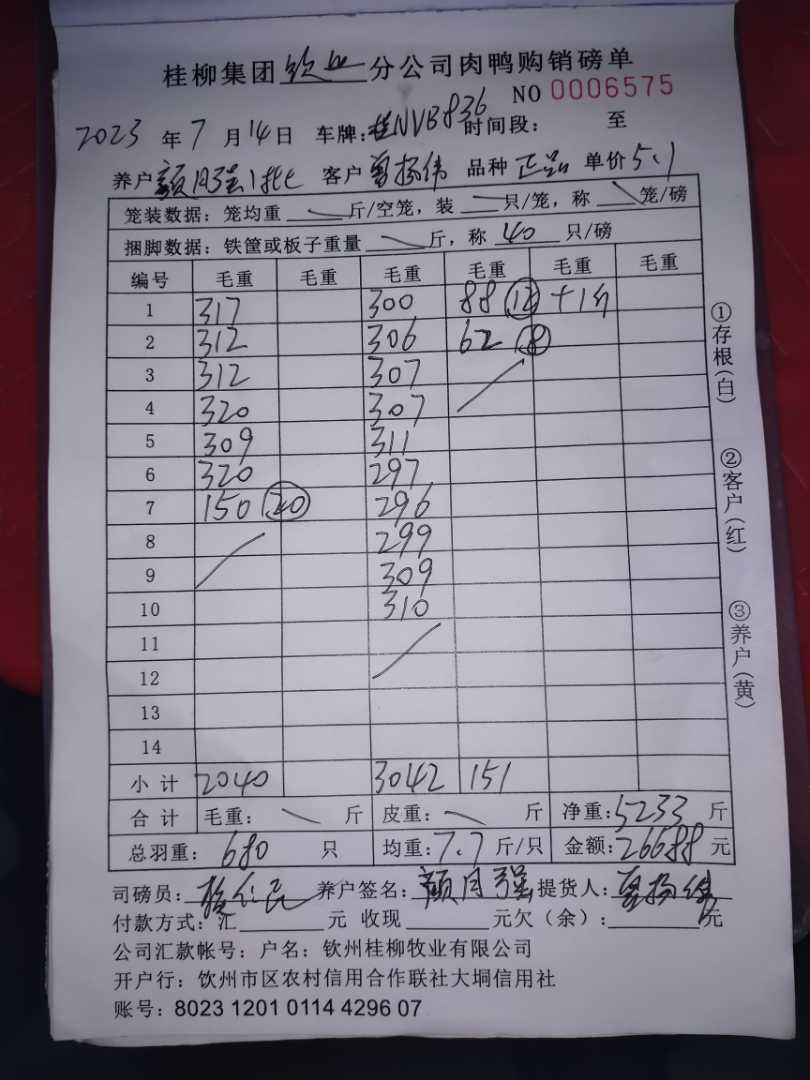 桂柳集团钦州分公司肉鸭购销磅单
NO 0006575
2023年7月14日 车牌:桂NVB836 时间段: 至
养户 颜月强1批 客户 曾扬伟 品种 正品 单价 5.1
笼装数据: 笼均重 斤/空笼, 装 只/笼, 称 笼/磅
捆脚数据: 铁筐或板子重量 斤, 称 40 只/磅
编号 毛重 毛重 毛重 毛重 毛重 毛重
1 317 300 88 12 +1斤
2 312 306 62 8
3 312 307
4 320 307
5 309 311
6 320 297
7 150 20 296
8 299
9 309
10 310
11
12
13
14
小计 2040 3042 151
合计 毛重: 斤 皮重: 斤 净重: 5233 斤
总羽重: 680 只 均重: 7.7 斤/只 金额: 26688 元
司磅员: 养户签名: 颜月强 提货人: 曾扬伟
付款方式: 汇 元 收现 元欠(余): 元
公司汇款帐号: 户名: 钦州桂柳牧业有限公司
开户行: 饮州市区农村信用合作联社大垌信用社
账号: 8023 1201 0114 4296 07
①存根(白)
②客户(红)
③养户(黄)